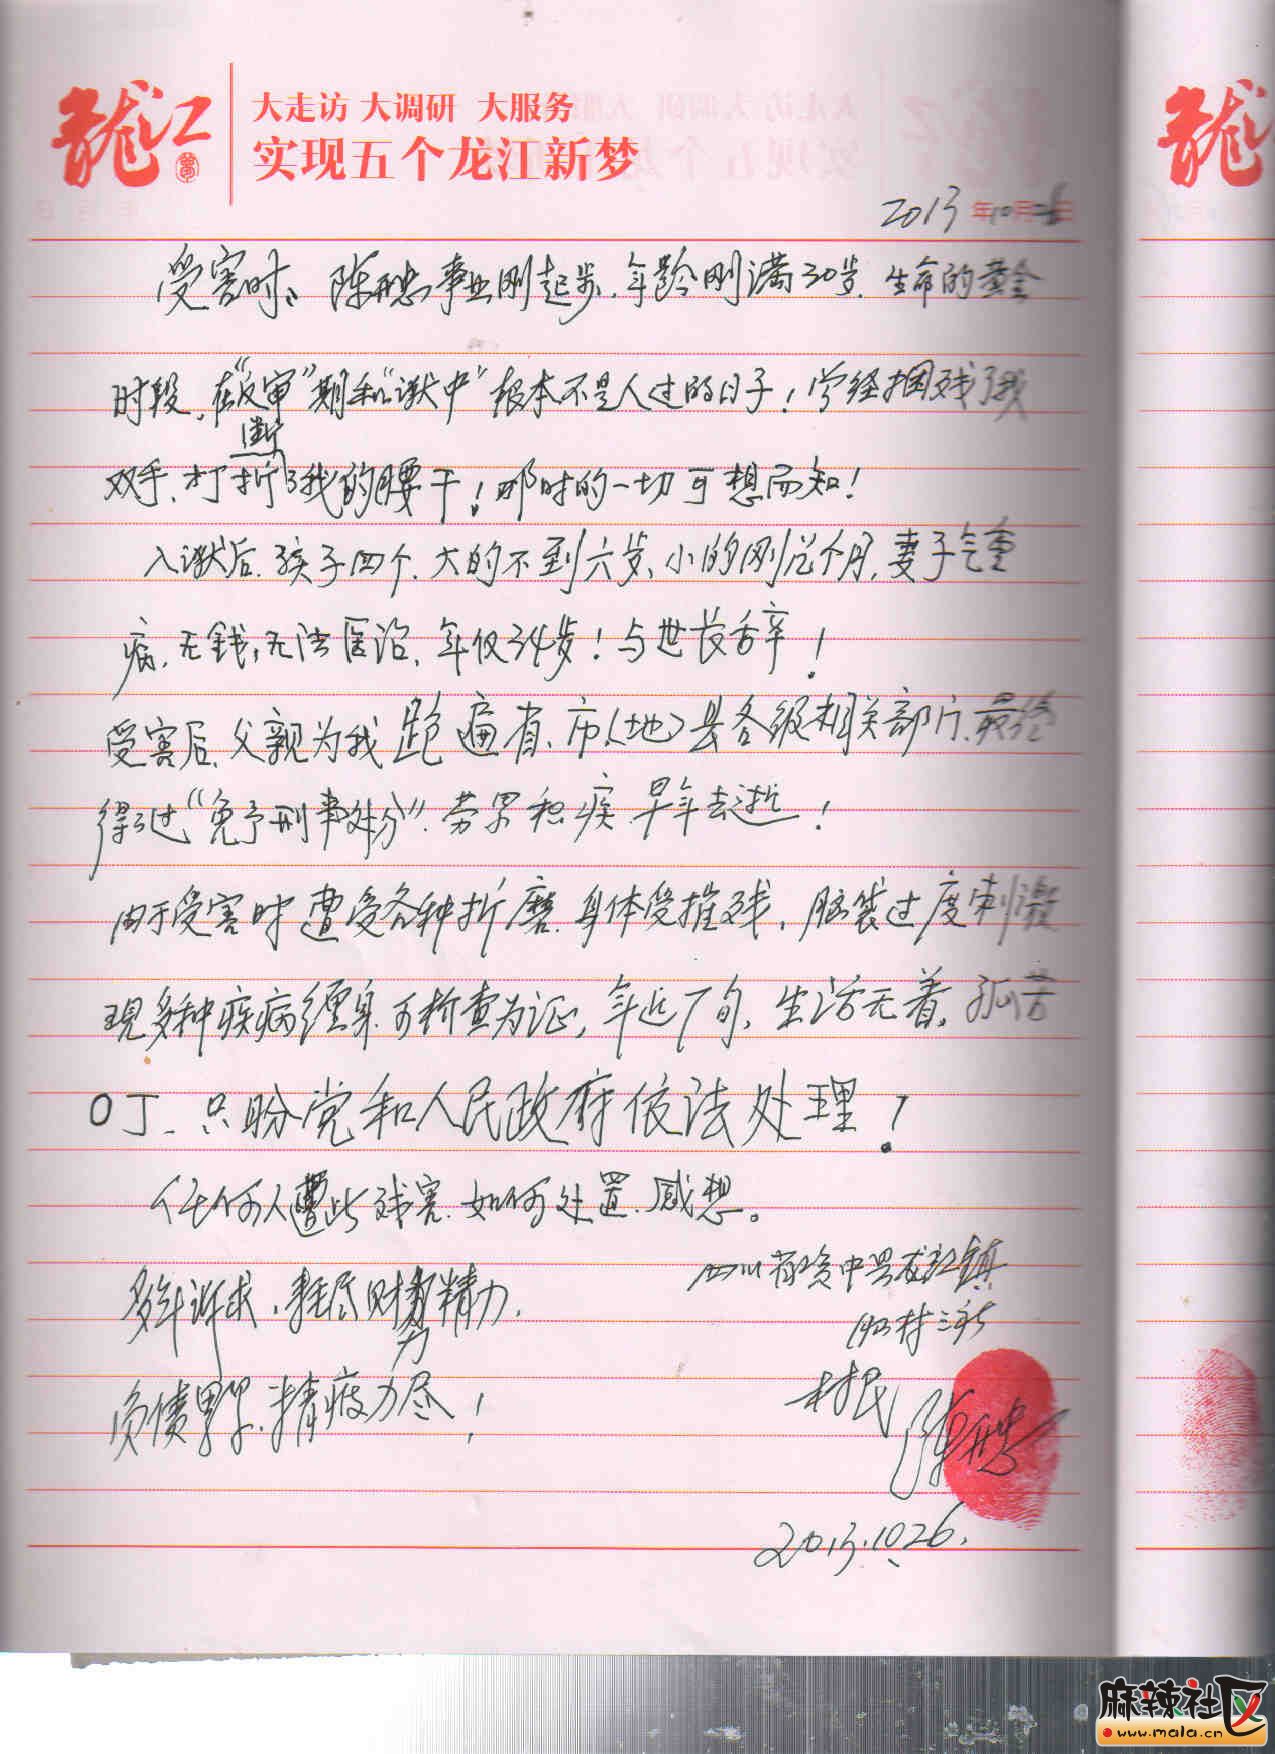 龙江
大走访 大调研 大服务
实现五个龙江新梦
2013年10月26日
受害时、陈形忠事业刚起步、年龄刚满30岁、生命的黄金
时段,在"收审"期和"狱中"根本不是人过的日子!曾经捆残了我
断
双手、打折了我的腰干!那时的一切可想而知!
入狱后、孩子四个、大的不到六岁、小的刚几个月、妻子气重
病、无钱,无法医治、年仅34岁!与世长辞!
受害后、父亲为我跑遍省、市(地)县各级相关部门、最终
得了过"免予刑事处分"、劳累积疾、早年去逝!
由于受害时遭受各种折磨、身体受摧残,脑袋过度刺激
现多种疾病缠身、可析查为证,年近7旬,生活无着,孤苦
0丁、只盼党和人民政府依法处理!
任何人遭此残害、如何处置、感想。
四川省资中县龙江镇
多年诉求,耗尽财力精力,
村三社
村民 陈形忠
负债累累、精疲力尽!
2013.10.26.
麻辣社区
www.mala.cn